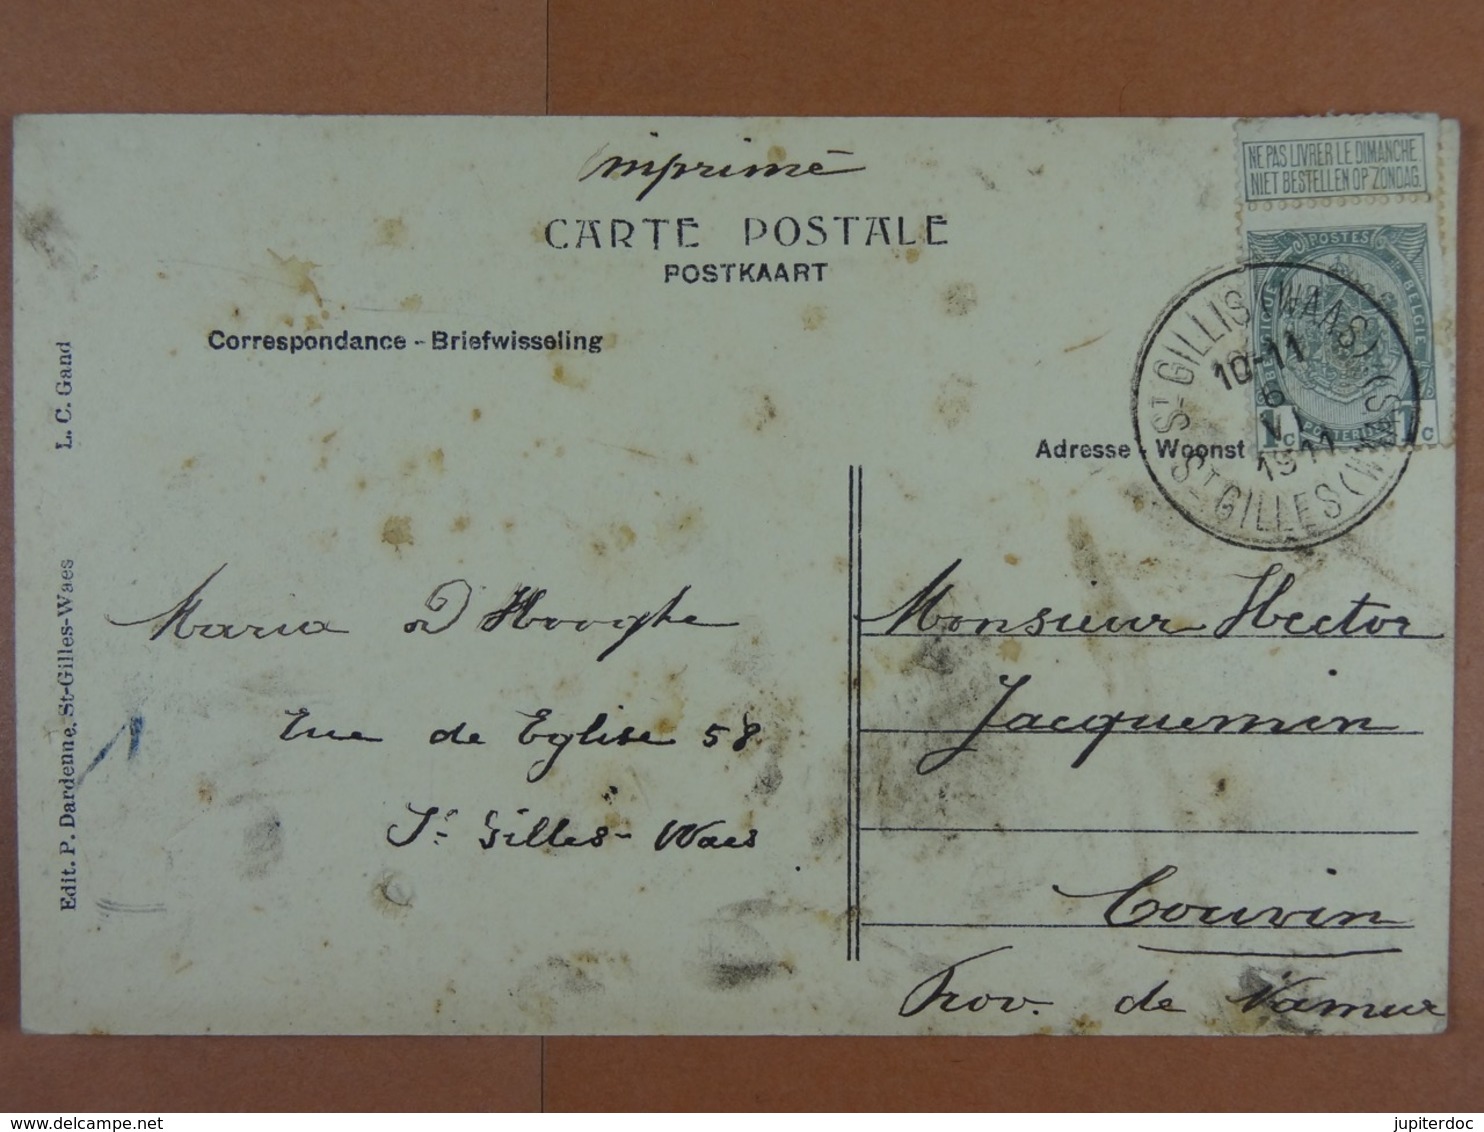 Imprimé
CARTE POSTALE
POSTKAART
NE PAS LIVRER LE DIMANCHE
NIET BESTELLEN OP ZONDAG
POSTES
BELGIE
BELGIQUE
POSTERIJEN
1c 1c
ST GILLIS (WAAS)
10-11
6
VI
1911
ST GILLES (WAES)
Correspondance - Briefwisseling
Adresse - Woonst
L. C. Gand
Edit. P. Dardenne, St-Gilles-Waes
Maria D'Hooghe
Rue de Eglise 58
St Gilles-Waes
Monsieur Hector
Jacquemin
Couvin
Prov. de Namur
delcampe.net
jupiterdoc